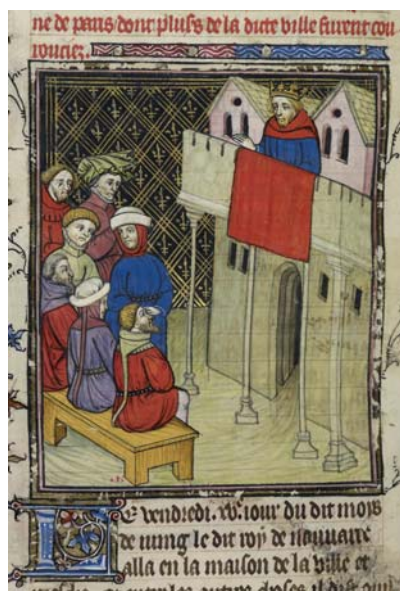 ne de paris dont plusˢ de la dicte ville furent cou
rouciez.
Le vendredi .xvͤ. iour du dit mois
de iuing le dit roy de nauarre
alla en la maison de la ville et